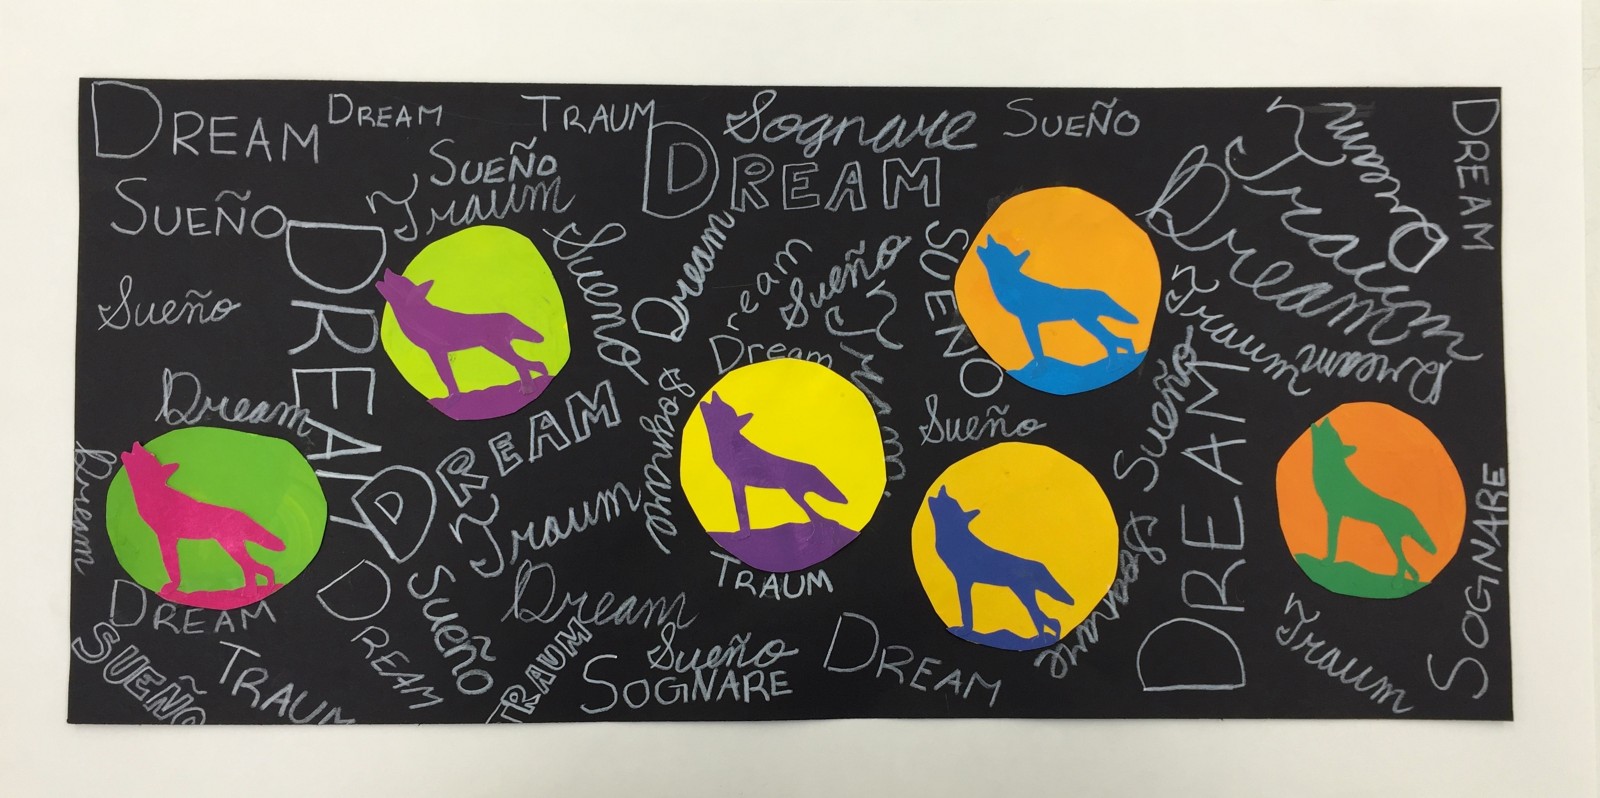 DREAM
DREAM
TRAUM
Sognare
SUEÑO
Dream
DREAM
SUEÑO
Traum
DREAM
Traum
SUEÑO
DREAM
Sueño
Dream
Dream
Sueño
SUEÑO
Dream
Traum
Sueño
Dream
Traum
Dream
Sognare
Sueño
DREAM
Dream
DREAM
Sueño
Sueño
DREAM
Dream
Traum
Sognare
SOGNARE
DREAM
TRAUM
Dream
SUEÑO
DREAM
Traum
SUEÑO
TRAUM
TRAUM
Sueño
SOGNARE
DREAM